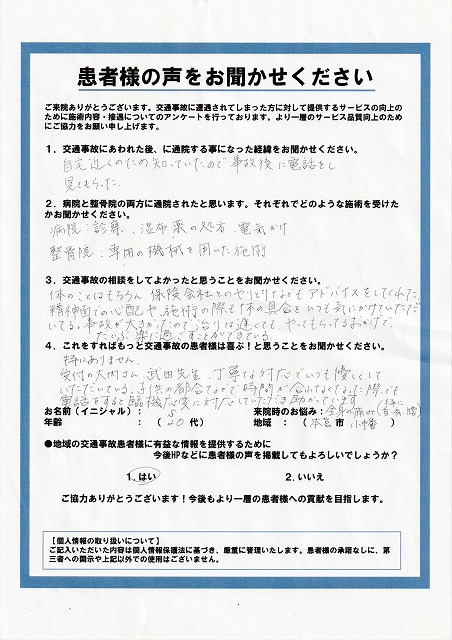 患者様の声をお聞かせください
ご来院ありがとうございます。交通事故に遭遇されてしまった方に対して提供するサービスの向上の
ために施術内容・接遇についてのアンケートを行っております。より一層のサービス品質向上のため
にご協力をお願い申し上げます。
1．交通事故にあわれた後、に通院する事になった経緯をお聞かせください。
自宅近くのため知っていたので事故後に電話をし
見てもらった。
2．病院と整骨院の両方に通院されたと思います。それぞれでどのような施術を受けた
かお聞かせください。
病院：診察、湿布薬の処方、電気かけ
整骨院：専用の機械を用いた施術
3．交通事故の相談をしてよかったと思うことをお聞かせください。
体のことはもちろん、保険会社とのやりとりなどもアドバイスをしてくれた。
精神面での心配や、施術の際も体の具合をいつも気にかけていただ
いてる。事故が大きかったので、治りは遅くても、やってもらえるおかげで、
だいぶ楽に過ごすことができている。
4．これをすればもっと交通事故の患者様は喜ぶ！と思うことをお聞かせください。
特にありません。
受付の大内さん、武田先生、丁寧な対応でいつも優しくして
いただいている。子供の都合などで時間が合わなくなった際でも
電話をすると臨機応変に対応していただき助かっています。
お名前（イニシャル）： S
来院時のお悩み：全身の痛み（特に首・肩・腰）
年齢 ：（20 代）
地域 ：（本宮 市 小幡 ）
●地域の交通事故患者様に有益な情報を提供するために
今後HPなどに患者様の声を掲載してもよろしいでしょうか？
1．はい 2．いいえ
ご協力ありがとうございます！今後もより一層の患者様への貢献を目指します。
【個人情報の取り扱いについて】
ご記入いただいた内容は個人情報保護法に基づき、厳重に管理いたします。患者様の承諾なしに、第
三者への開示や上記以外での使用はございません。